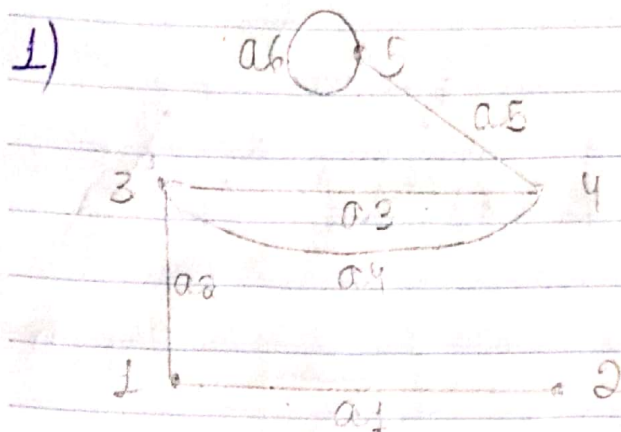 1)
a6 5
a5
3 4
a3
a4
a2
1 2
a1